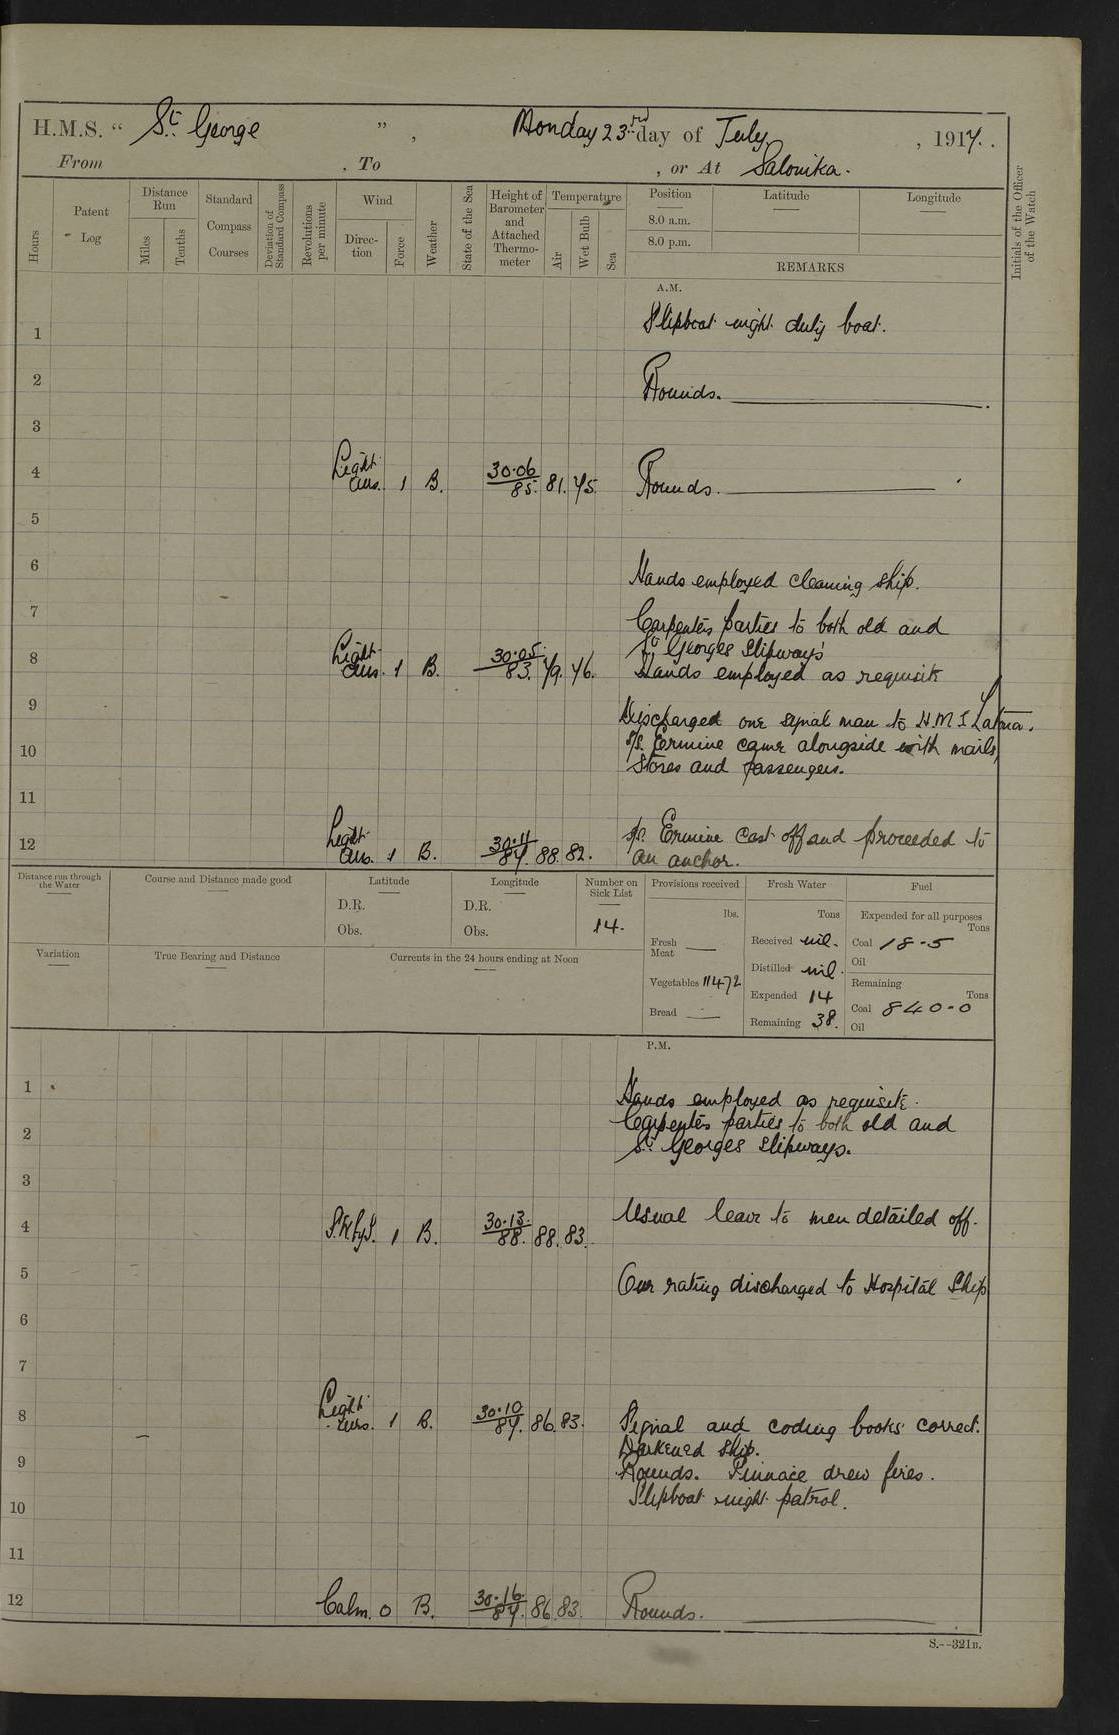 H.M.S. " St. George " , Monday 23rd day of July , 1917.
From , To , or At Salonika.
Hours
Patent Log
Distance Run
Miles
Tenths
Standard Compass Courses
Deviation of Standard Compass
Revolutions per minute
Wind
Direction
Force
Weather
State of the Sea
Height of Barometer and Attached Thermometer
Temperature
Air
Wet Bulb
Sea
Position
Latitude
Longitude
8.0 a.m.
8.0 p.m.
REMARKS
Initials of the Officer of the Watch
A.M.
1 Slipboat night duty boat.
2 Rounds.
3
4 Light airs. 1 B. 30.06 85. 81. 75. Rounds.
5
6 Hands employed cleaning ship.
7 Carpenters parties to both old and
St. Georges Slipways
8 Light airs. 1 B. 30.05. 83. 79. 76. Hands employed as requisite
9 Discharged one signal man to H.M.S.
10 S/S. Ermine came alongside with mails,
Stores and passengers.
11
12 Light airs. 1 B. 30.11 87. 88. 82. S/S. Ermine cast off and proceeded to
an anchor.
Distance run through the Water
Course and Distance made good
Latitude
D.R.
Obs.
Longitude
D.R.
Obs.
Number on Sick List
14.
Provisions received
lbs.
Fresh Meat
Vegetables 11472
Bread
Fresh Water
Tons
Received nil.
Distilled nil.
Expended 14
Remaining 38.
Fuel
Expended for all purposes
Tons
Coal 18-5
Oil
Remaining
Tons
Coal 840-0
Oil
Variation
True Bearing and Distance
Currents in the 24 hours ending at Noon
P.M.
1 Hands employed as requisite.
2 Carpenters parties to both old and
St. Georges Slipways.
3
4 S.W.byS. 1 B. 30.13. 88. 88. 83. Usual leave to men detailed off.
5 One rating discharged to Hospital Ship
6
7
8 Light airs. 1 B. 30.10 87. 86. 83. Signal and coding books correct.
Darkened ship.
9 Rounds. Pinnace drew fires.
10 Slipboat night patrol.
11
12 Calm. 0 B. 30.16. 87. 86. 83. Rounds.
S.--321B.